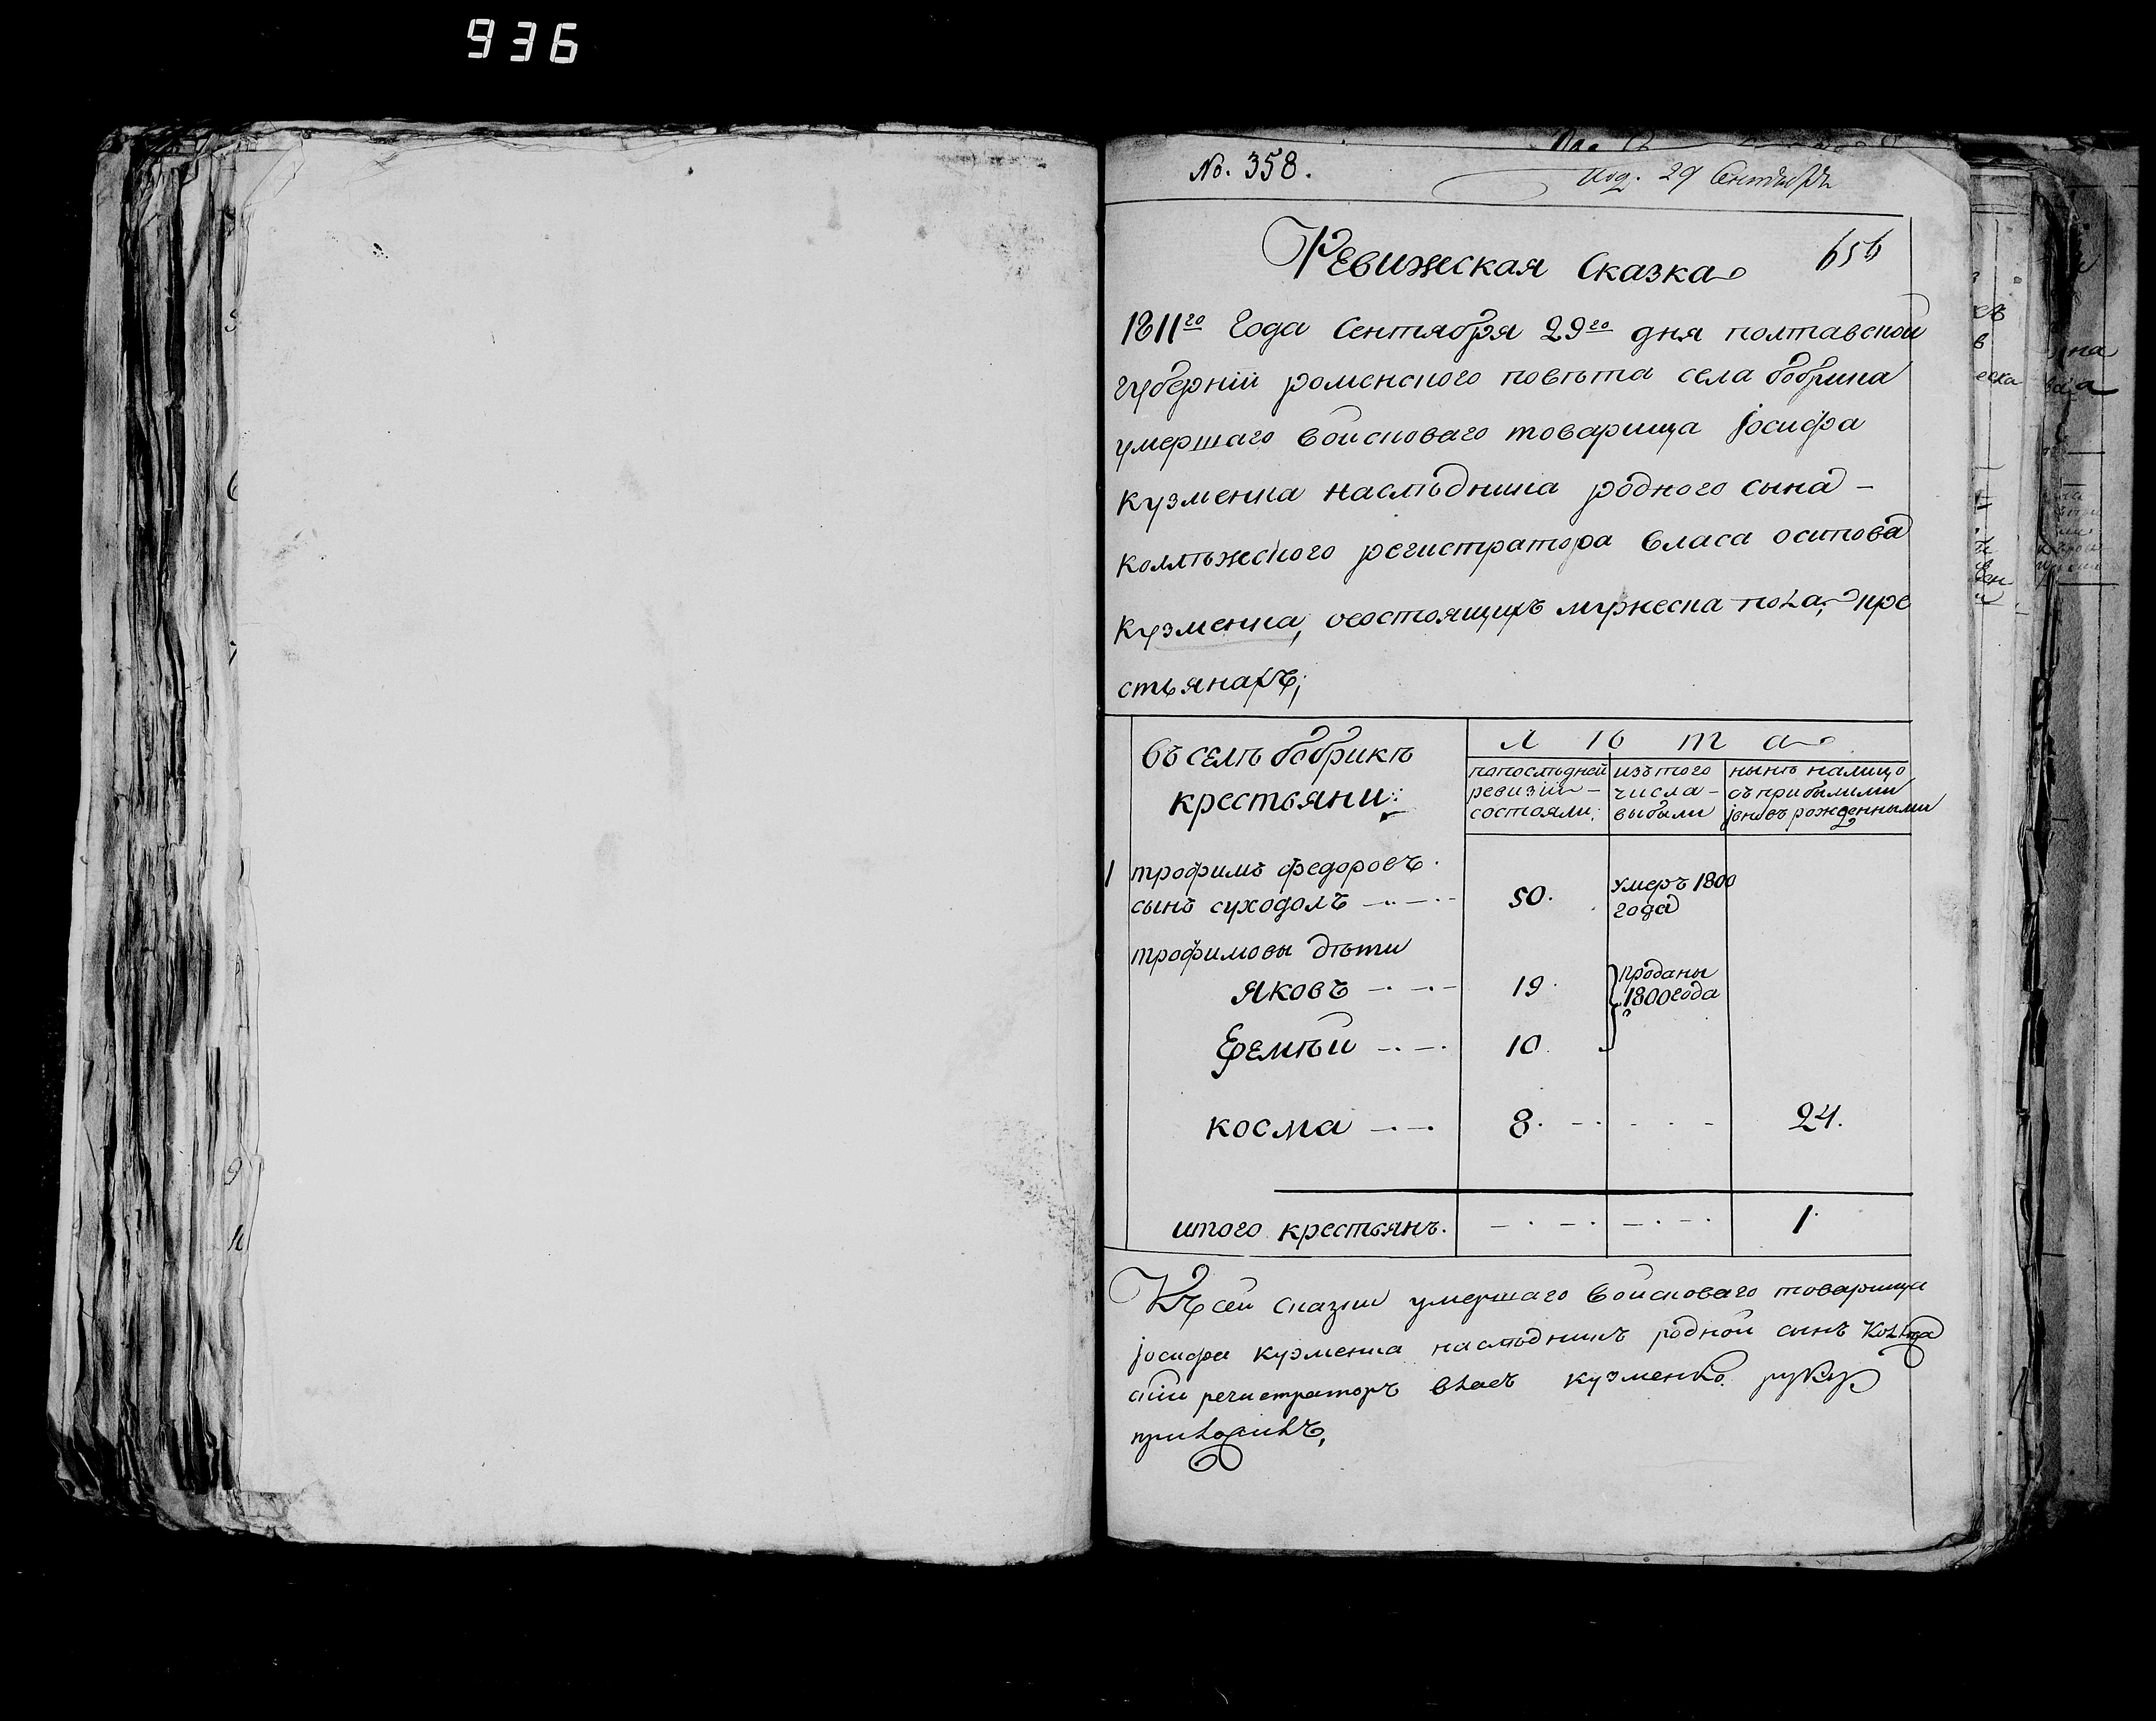 936
No. 358.
Под. 29 Сентября
656
Ревижская Сказка
1811го Года Сентября 29го дня полтавской
губерніи роменского повѣта села бобрика
умершаго войсковаго товарища іосифа
кузменка наслѣдника родного сына -
коллѣжского регистратора власа осипова
кузменка, осостоящихъ мужеска пола, кре
стьянахъ;
въ селѣ бобрикѣ
крестьяни:
Л ѣ т а
попослѣдней ревизіи - состояли;
изътого числа - выбыли
нынѣ налицо съ прибылими іновъ рожденными
1 трофимъ федоровъ.
сынъ суходолъ 50. умеръ 1800 года
трофимовы дѣти
яковъ 19. проданы 1800 года
Еремѣй 10.
косма 8. 24.
итого крестьянъ. 1.
Къ сей сказки умершаго войсковаго товарища
іосифа кузменка наслѣдникъ родной сынъ
регистраторъ власъ кузменко руку
приложилъ,